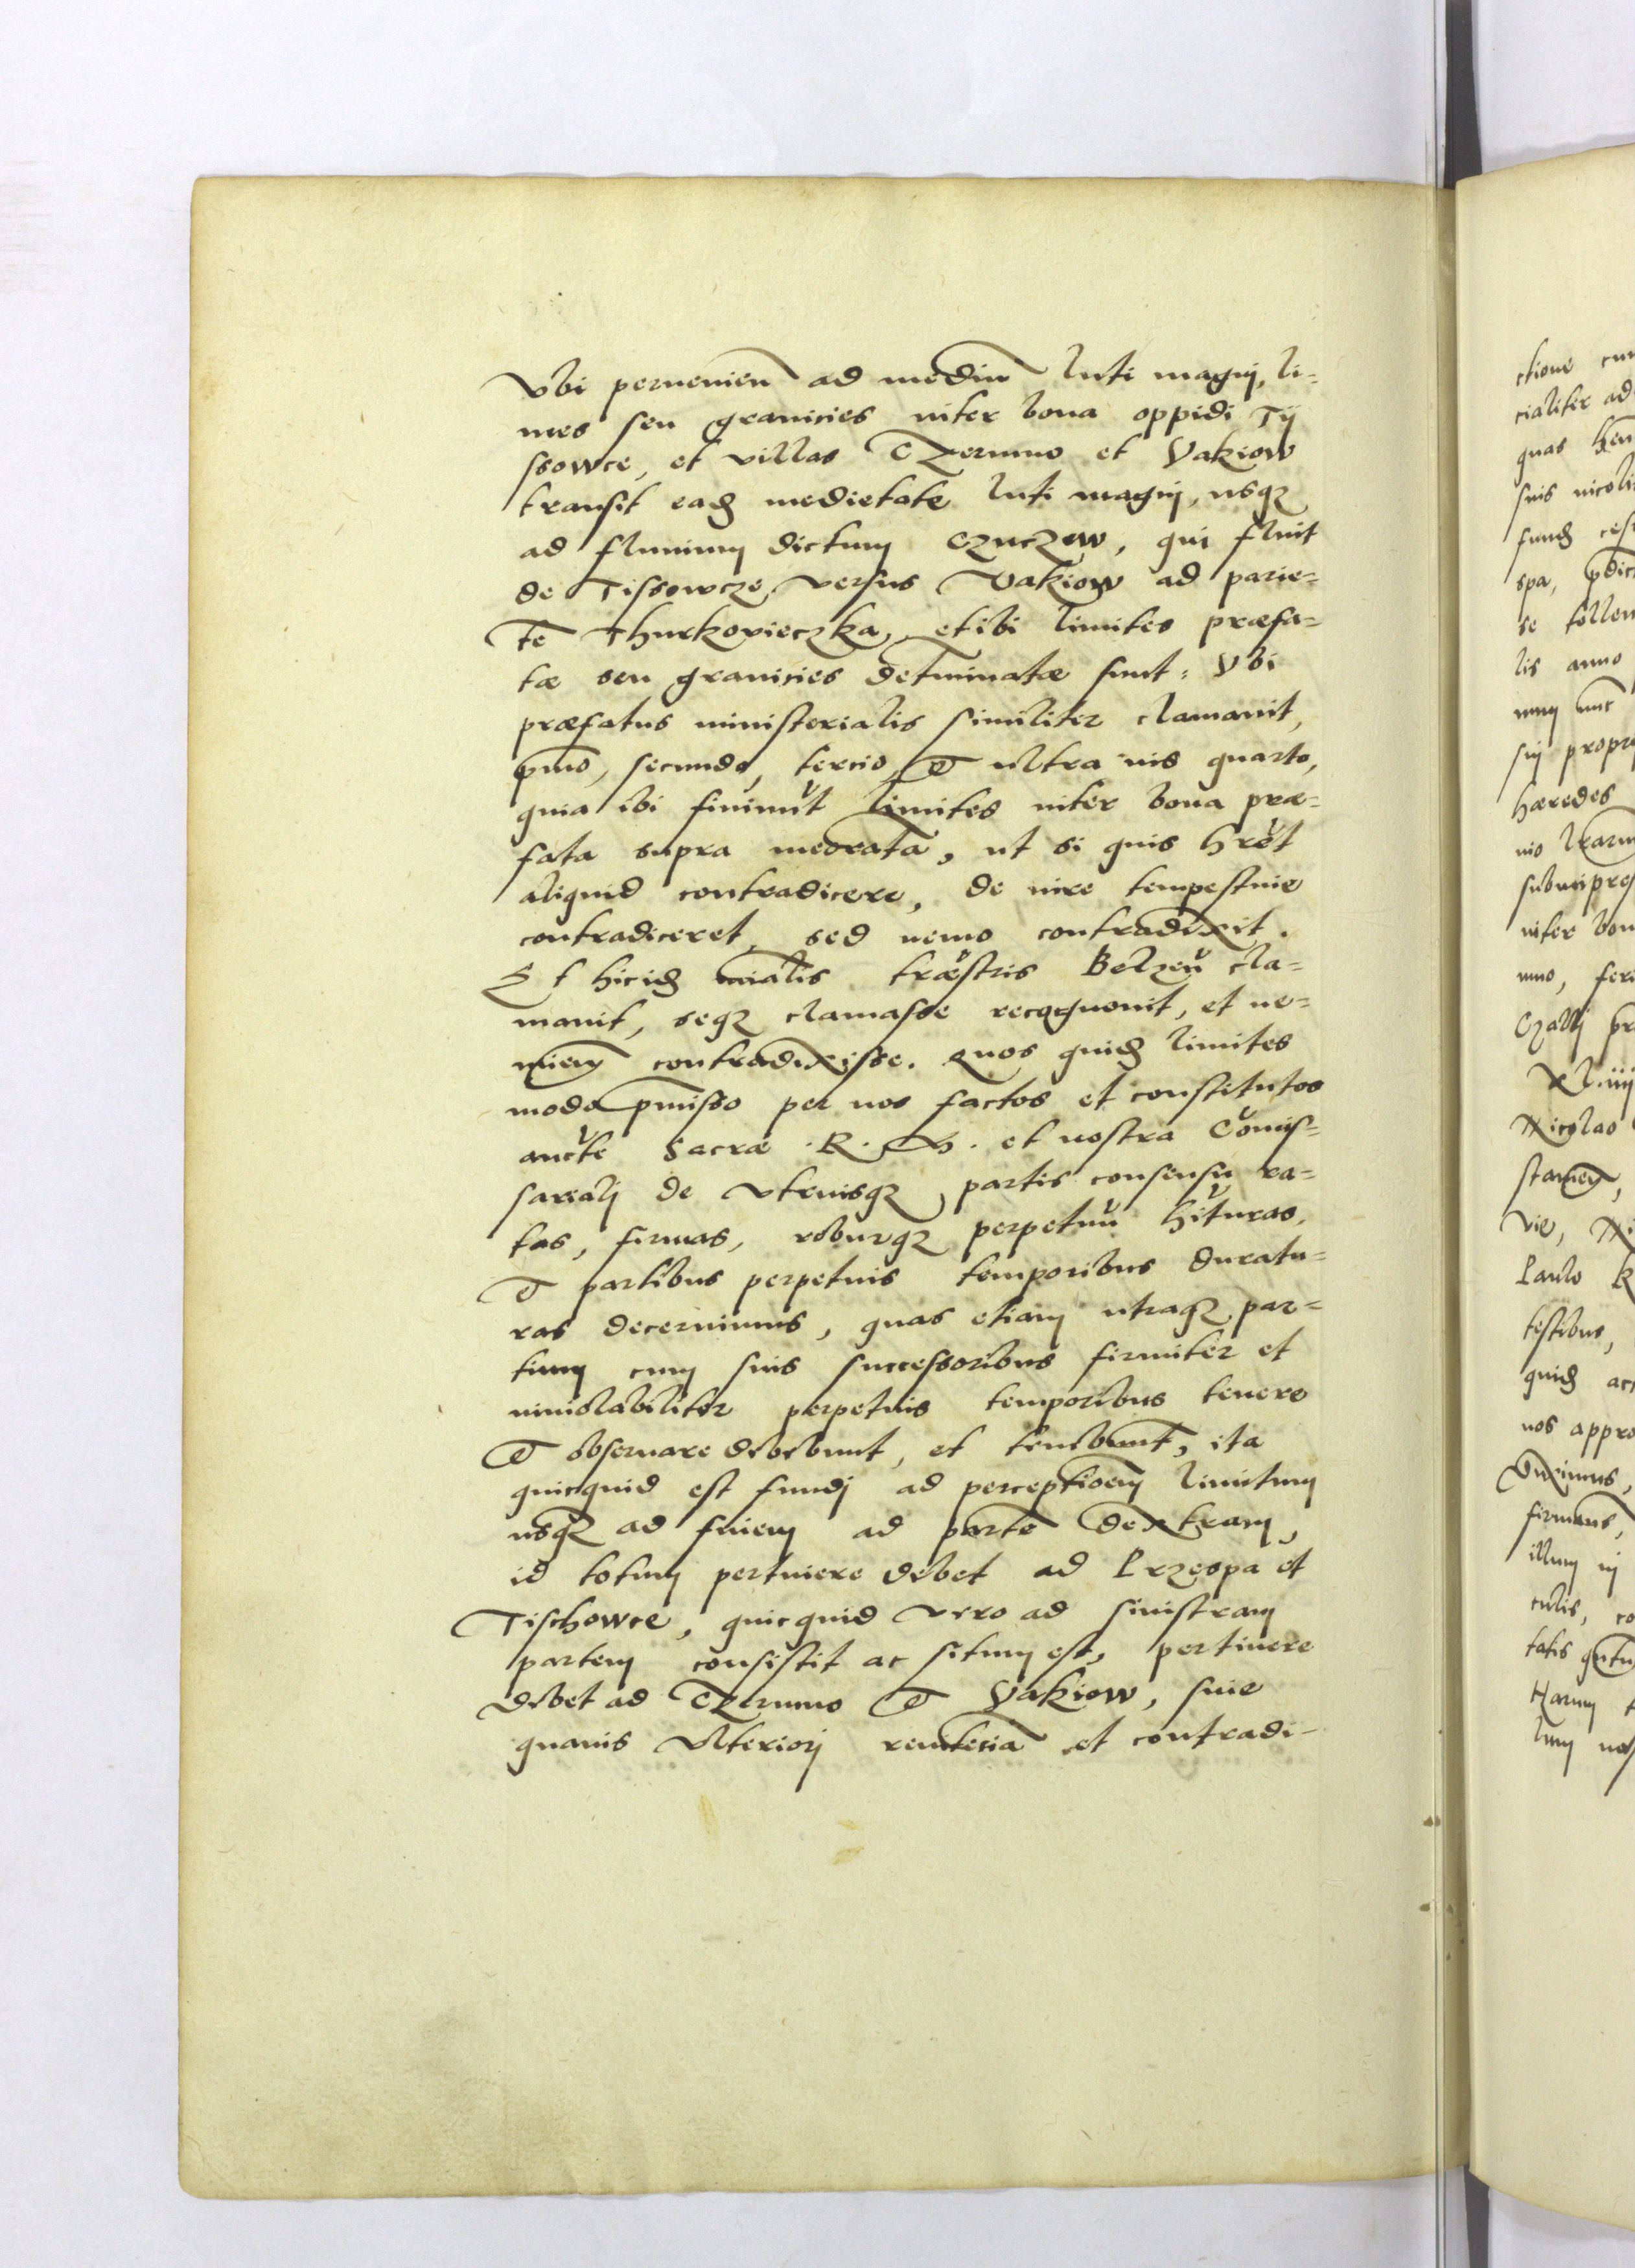 Vbi pervenien ad mediu luti magnj, li=
mes seu granicies inter bona oppidi Tij
ssowce, et villas Czermno et Vakiow
transit ead medietate luti magnj, usqz
ad fluuium dictum Czuczew, qui fluit
de Tissowcze, versus Vakiow ad parie=
te Thurkovieczka, et ibi limites præfa=
tæ seu granicies determinatæ sunt: Vbi
præfatus ministerialis similiter clamauit,
primo, secundo, tercio, & ultra ius quarto,
quia ibi finiunt limites inter bona præ=
fata supra memorata, ut si quis hret
aliquid contradicere, de iure tempestiue
contradiceret, sed nemo contradixit.
Et hic id mialis træstris Belzeu cla=
mauit, seqz clamasse recognouit, et ne=
minem contradixisse. Quos quid limites
modo pmisso per nos factos et constitutos
aucte Sacræ .R. M. et nostra Comis=
sarialj de vtriusqz partis consensu ra=
tas, firmas, roburqz perpetuu hituras,
& partibus perpetuis temporibus duratu=
ras decernimus, quas etiam utraqz par=
tium cum suis successoribus firmiter et
inuiolabiliter perpetuis temporibus tenere
& obseruare debebunt, et tenebunt, ita
quicquid est fundj ad perceptioem limitum
usqz ad finem ad parte dextram,
id totum pertinere debet ad Przespa et
Tischowce, quicquid vero ad sinistram
partem consistit ac situm est, pertinere
debet ad Czermno & Vakiow, sine
quauis vlteriorj renitecia et contradi-
ctione
cialiter ad
quas
suis
fund
spa,
se tollen
lis anno
num nunc
sij propr
hæredes
nio
inter bon
Nicolao
vie,
Paulo K
testibus,
quid
nos appro
Duximus,
illum in
culis, co
tatis